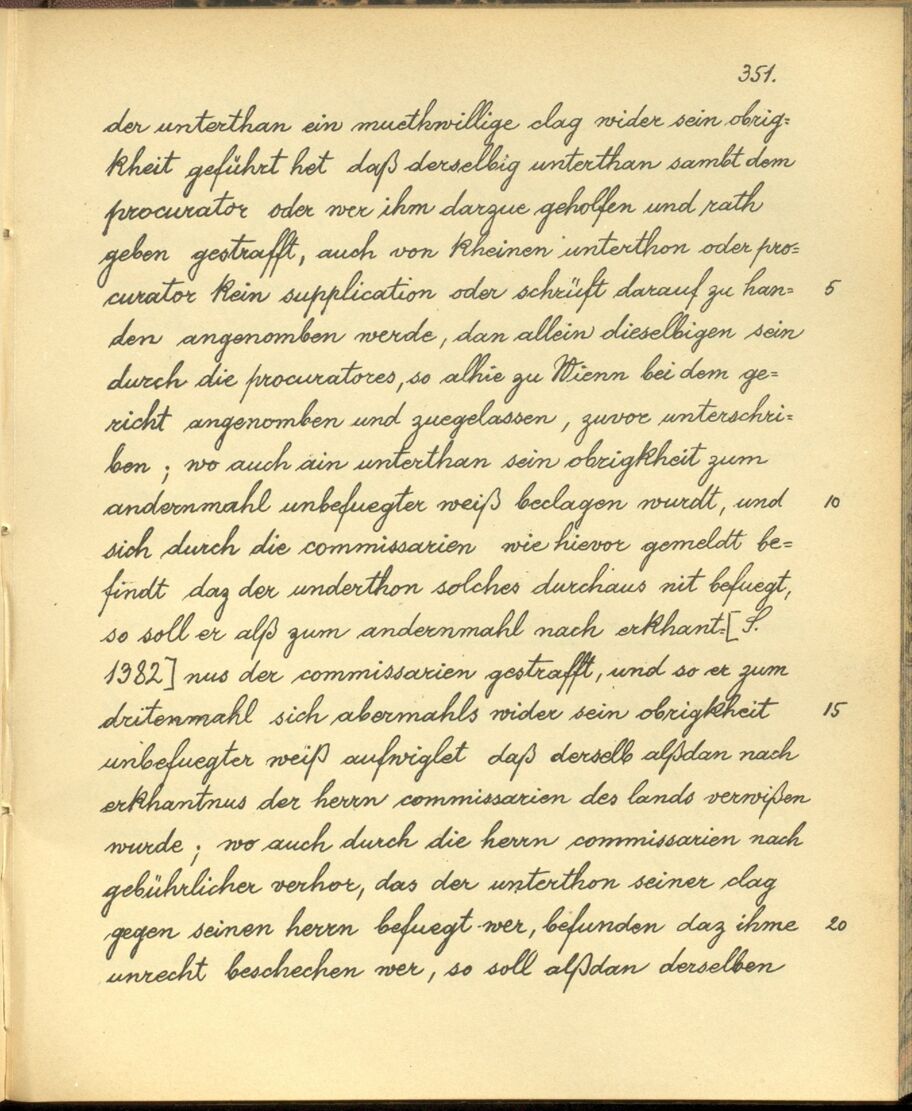 351.
der unterthan ein muethwillige clag wider sein obrig=
kheit geführt het daß derselbig unterthan sambt dem
procurator oder wer ihm darzue geholfen und rath
geben gestrafft, auch von kheinen unterthon oder pro=
curator kein supplication oder schrüft darauf zu han= 5
den angenomben werde, dan allein dieselbigen sein
durch die procuratores, so alhie zu Wienn bei dem ge=
richt angenomben und zuegelassen, zuvor unterschri=
ben ; wo auch ain unterthan sein obrigkheit zum
andernmahl unbefuegter weiß beclagen wurdt, und 10
sich durch die commissarien wie hievor gemeldt be=
findt daz der underthon solches durchaus nit befuegt,
so soll er alß zum andernmahl nach erkhant=[S.
1382] nus der commissarien gestrafft, und so er zum
dritenmahl sich abermahls wider sein obrigkheit 15
unbefuegter weiß aufwiglet daß derselb alßdan nach
erkhantnus der herrn commissarien des lands verwißen
wurde ; wo auch durch die herrn commissarien nach
gebührlicher verhor, das der unterthon seiner clag
gegen seinen herrn befuegt wer, befunden daz ihme 20
unrecht beschechen wer, so soll alßdan derselben